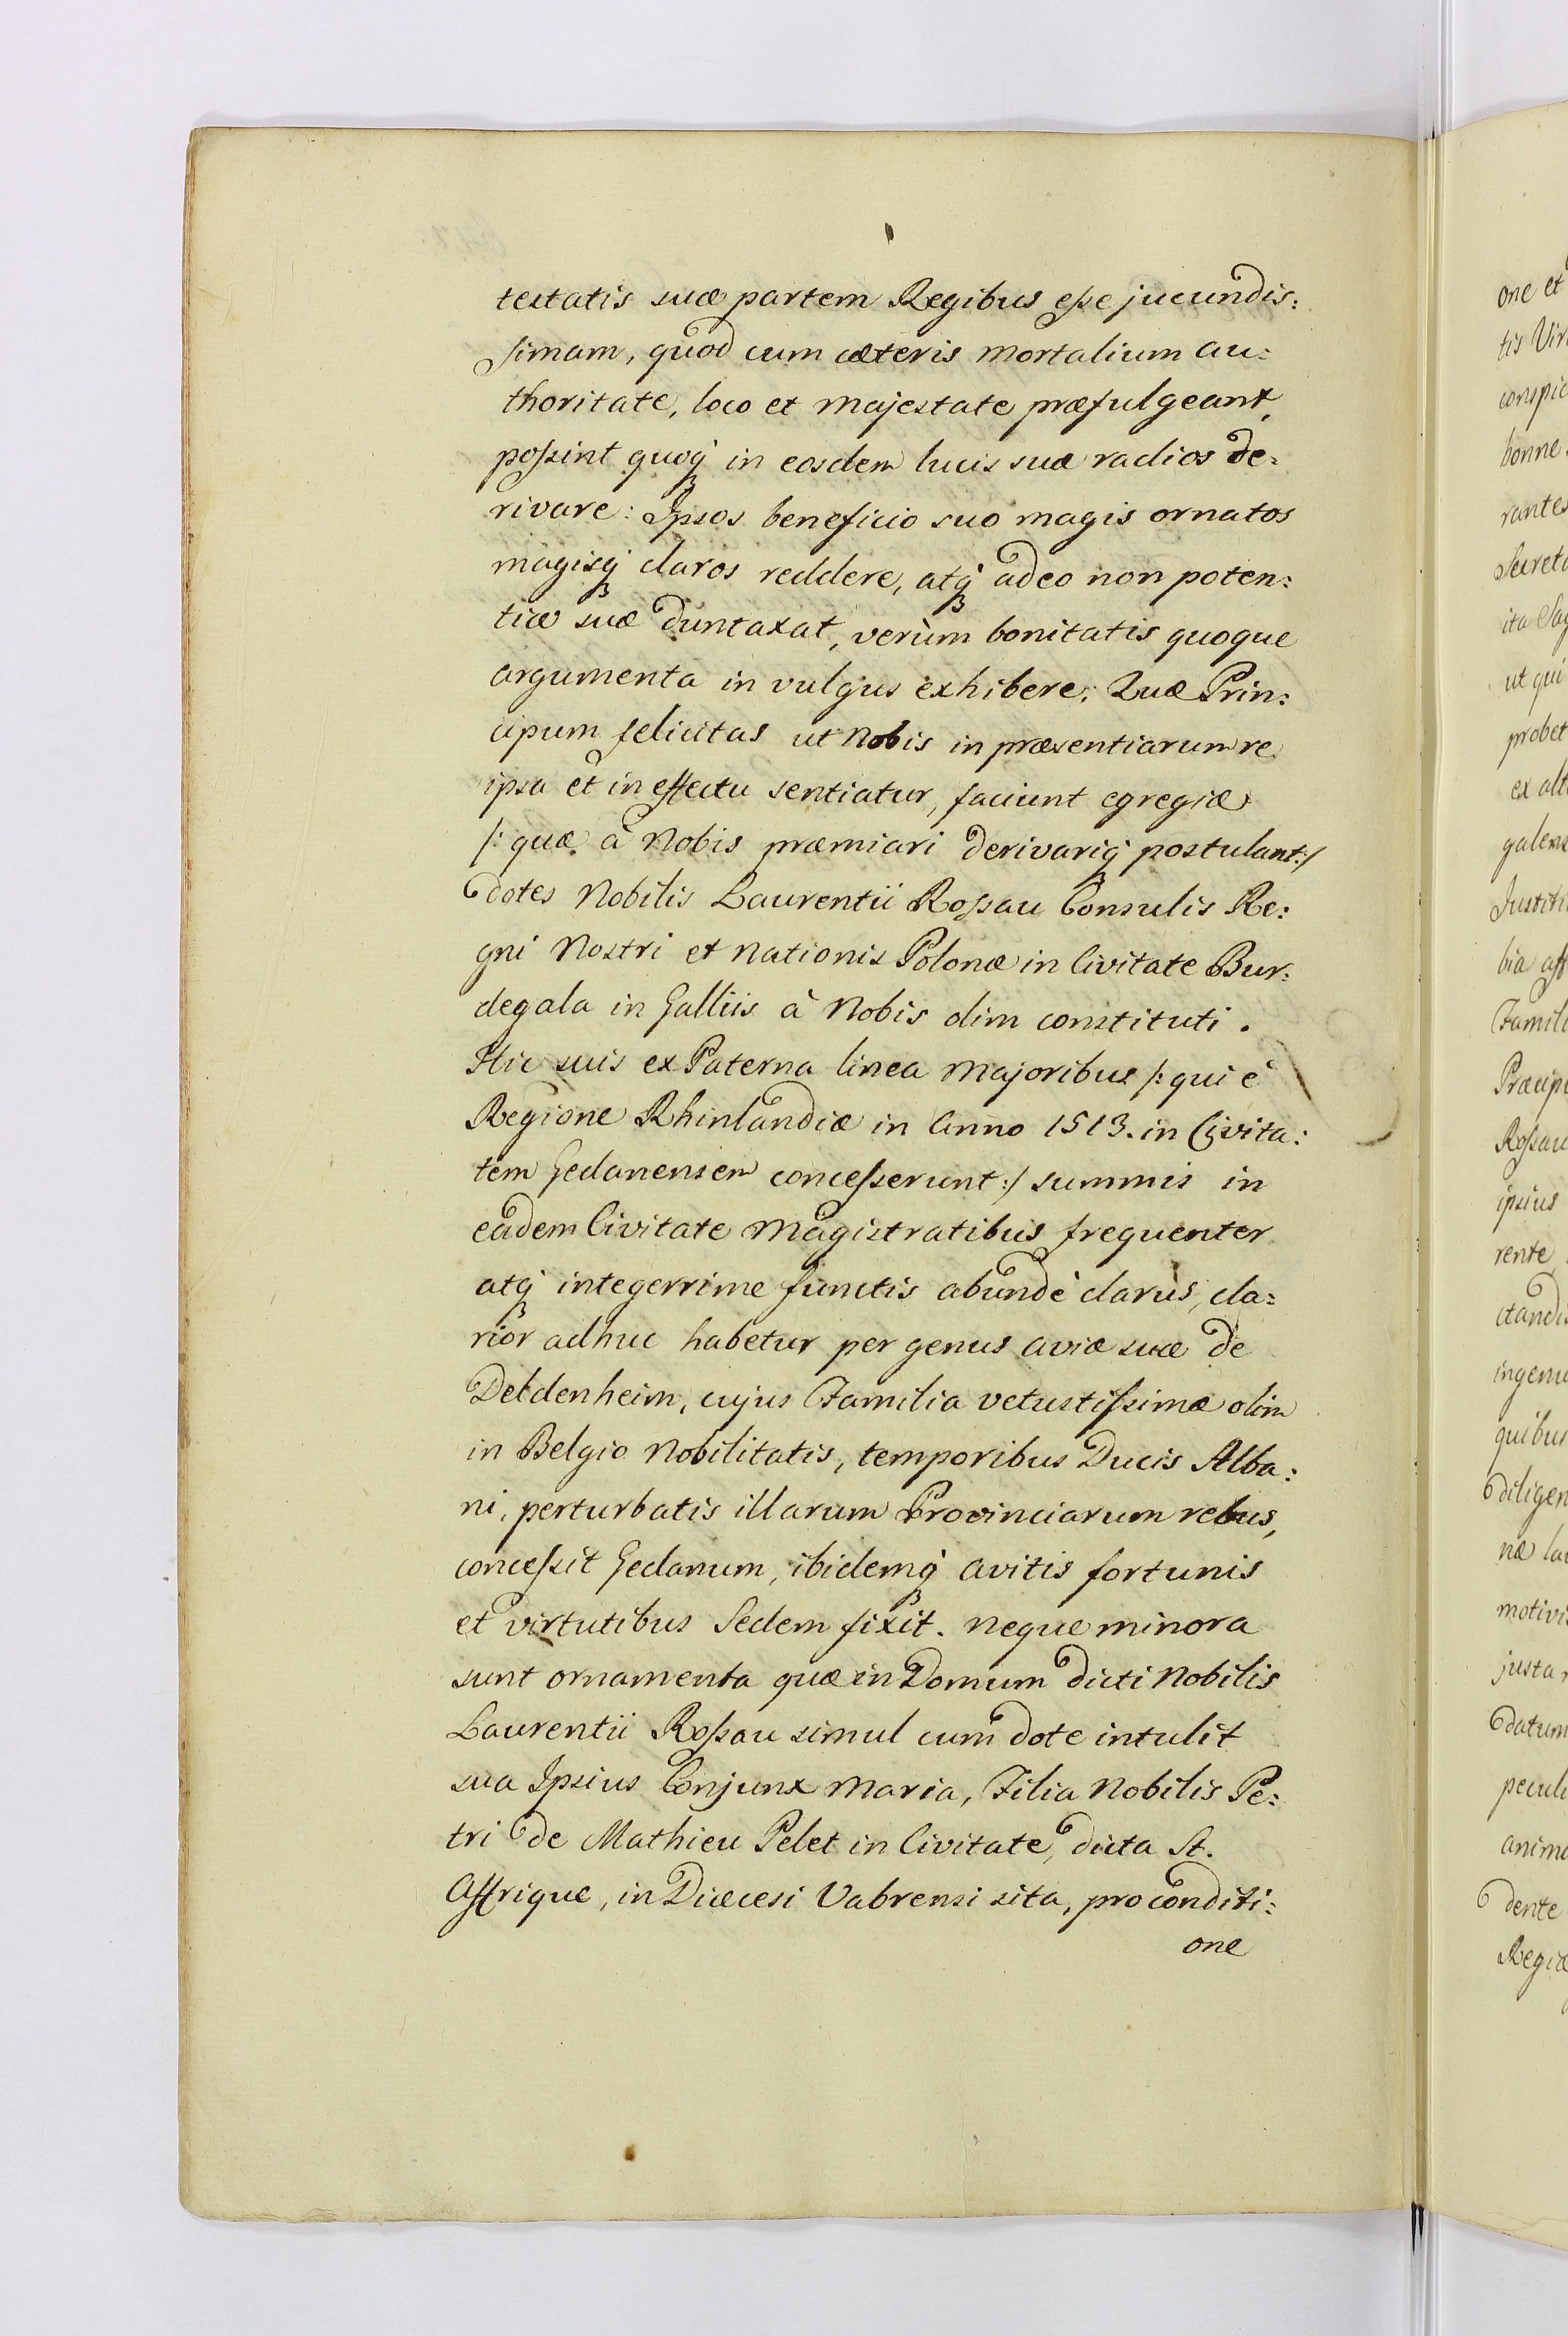 testatis suæ partem Regibus eſse jucundis:
simam, quod cum cæteris mortalium au:
thoritate, loco et Majestate præfulgeant,
poſsint quoqꝫ in eosdem lucis suæ radios de:
rivare: Ipsos beneficio suo magis ornatos
magisqꝫ claros reddere, atqꝫ adeo non poten:
tiæ suæ duntaxat, verùm bonitatis quoque
argumenta in vulgus exhibere; Quæ Prin:
cipum felicitas ut Nobis in præsentiarum re
ipsa et in effectu sentiatur, faciunt egregiæ
/: quæ à Nobis præmiari derivariqꝫ postulant :/
dotes Nobilis Laurentii Roſsau Consulis Re:
gni Nostri et Nationis Polonæ in Civitate Bur:
degala in Galliis à Nobis olim constituti.
Hic suis ex Paterna linea Majoribus /: qui è
Regione Rhinlandiæ in Anno 1513. in Civita:
tem Gedanensem conceſserunt :/ summis in
eâdem Civitate Magistratibus frequenter
atqꝫ integerrime functis abundè clarùs, cla:
rior adhuc habetur per genus aviæ suæ de
Deldenheim, cujus Familia vetustiſsimæ olim
in Belgio Nobilitatis, temporibus Ducis Alba:
ni, perturbatis illarum Provinciarum rebus,
conceſsit Gedanum, ibidemqꝫ avitis fortunis
et virtutibus Sedem fixit. Neque minora
sunt ornamenta quæ in Domum dicti Nobilis
Laurentii Roſsau simul cum dote intulit
sua Ipsius Conjunx Maria, Filia Nobilis Pe:
tri de Mathieu Pelet in Civitate, dicta St.
Affrique, in Diæcesi Vabrensi sita, pro conditi:
one
one et
tis Vir
conspic
bonne
rantes
Secreta
ita Sag
ut qui
probet
ex alt
galens
Justiti
bia aff
Famili
Præcip
Roſsau
ipsius
rente
ctandi
ingenu
quibus
diligen
næ la
motivi
justa
datum
peculi
anima
dente
Regiæ